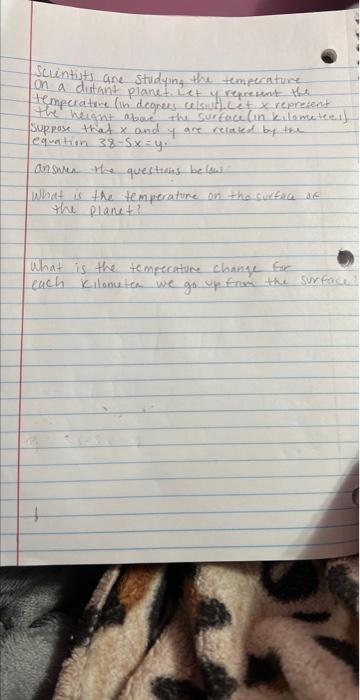 Scientists are studying the temperature
on a distant planet. Let y represent the
temperature (in degrees celsius). Let x represent
the height above the surface (in kilometers).
Suppose that x and y are related by the
equation 38-5x=y.
answer the questions below
What is the temperature on the surface of
the planet?
What is the temperature change for
each kilometer we go up from the surface?